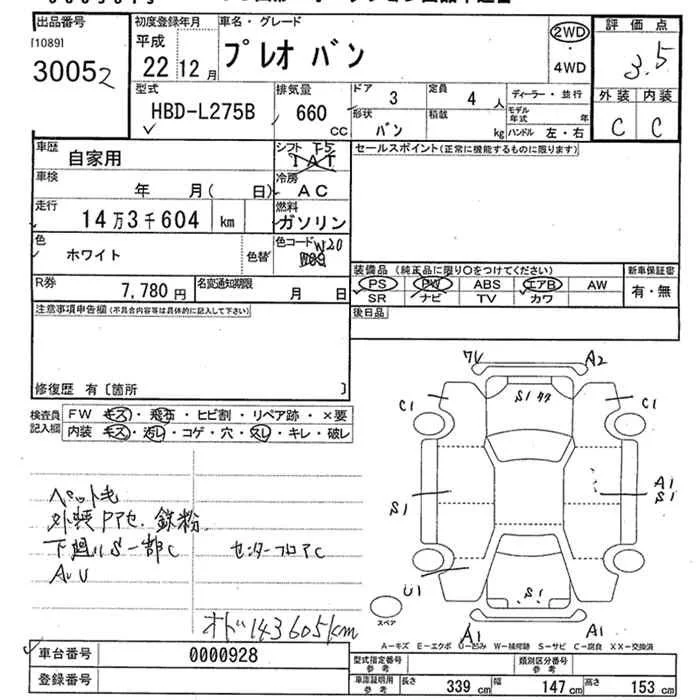 出品番号
[1089]
30052
初度登録年月
平成
22 12月
車名・グレード
プレオ バン
2WD
4WD
評価点
3.5
外装 内装
C C
型式
HBD-L275B
排気量
660 CC
ドア 3
定員 4人
形状 バン
積載 kg
ディーラー・並行
モデル年式 年
ハンドル 左・右
車歴 自家用
シフト T5
IAT
車検 年 月( 日)
冷房 AC
走行 14万3千604 km
燃料 ガソリン
色 ホワイト
色替
色コード W20
R券 7,780円
名変通知期限 月 日
セールスポイント(正常に機能するものに限ります)
装備品 (純正品に限り○をつけてください)
新車保証書
PS PW ABS エアB AW
有・無
SR ナビ TV カワ
後日品
注意事項申告欄(不具合内容等は具体的に記入して下さい)
修復歴 有[箇所 ]
検査員記入欄
FW キズ・飛石・ヒビ割・リペア跡・×要
内装 キズ・汚レ・コゲ・穴・スレ・キレ・破レ
ペット毛
外装Pアセ、鉄粉
下廻りS一部C
センターフロアC
AUU
オド143605km
ワレ A2
S1
C1 C1
S1
A1
S1
U1
S1
A1 A1
スペア
A−キズ E−エクボ U−凹み W−補修跡 S−サビ C−腐食 XX−交換済
車台番号 0000928
登録番号
型式指定番号 参考
類別区分番号 参考
車庫証明用 参考
長さ 339 cm 幅 147 cm 高さ 153 cm